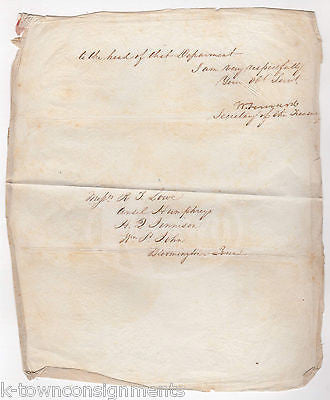 to the head of that Department
I am very respectfully
Your Obt Servt
Secretary of the Treasury
Messrs R. F. Lowe
Ansel Humphreys
H. D. Jennison
Wm St John
Bloomington Iowa
k-townconsignments